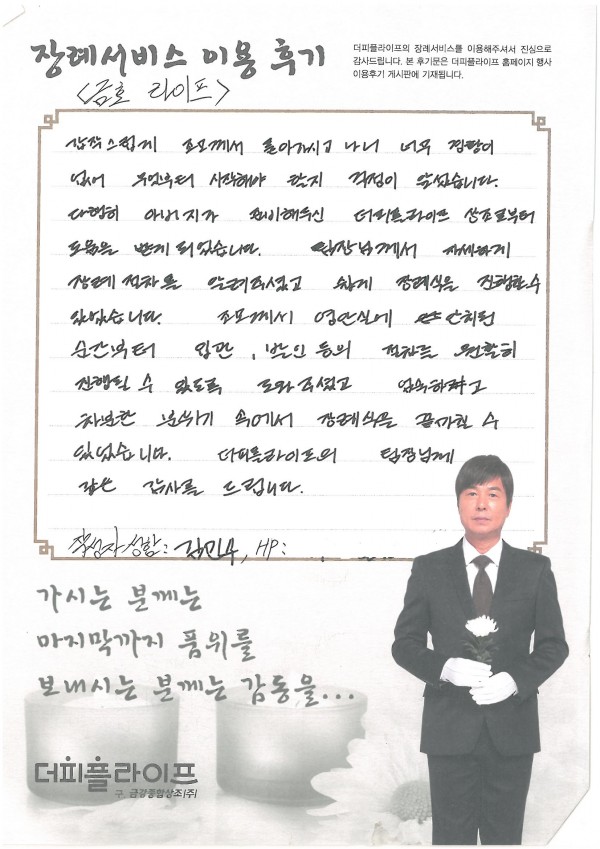 장례서비스 이용 후기
<금호 라이프>
더피플라이프의 장례서비스를 이용해주셔서 진심으로
감사드립니다. 본 후기문은 더피플라이프 홈페이지 행사
이용후기 게시판에 기재됩니다.
갑작스럽게 조모께서 돌아가시고 나니 너무 경황이
없어 무엇부터 시작해야 할지 걱정이 앞섰습니다.
다행히 아버지가 준비해두신 더피플라이프 상조로부터
도움을 받게 되었습니다. 팀장님께서 자세하게
장례 절차를 알려주셨고 쉽게 장례식을 진행할 수
있었습니다. 조모께서 영안실에 안치된
순간부터 입관, 발인 등의 절차를 원활히
진행될 수 있도록 도와주셨고 엄숙하고
차분한 분위기 속에서 장례식을 끝마칠 수
있었습니다. 더피플라이프의 팀장님께
감사를 드립니다.
작성자 성함: 김민수, HP:
가시는 분께는
마지막까지 품위를
보내시는 분께는 감동을...
더피플라이프
구. 금강종합상조(주)